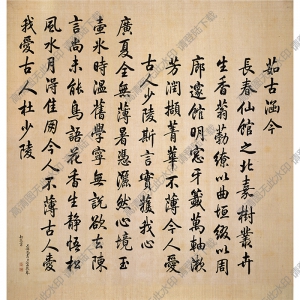 茹古涵今
長春仙館之北嘉樹叢卉
生香蓊葧繚以曲垣綴以周
廊邃館明窓牙籤萬軸漱
芳潤擷菁華不薄今人愛
古人少陵斯言實獲我心
廣廈全無薄暑憑灑然心境玉
壺冰時溫舊學寧無說欲去陳
言尚未能鳥語花香生静悟松
風水月得佳朋今人不薄古人愛
我愛古人杜少陵